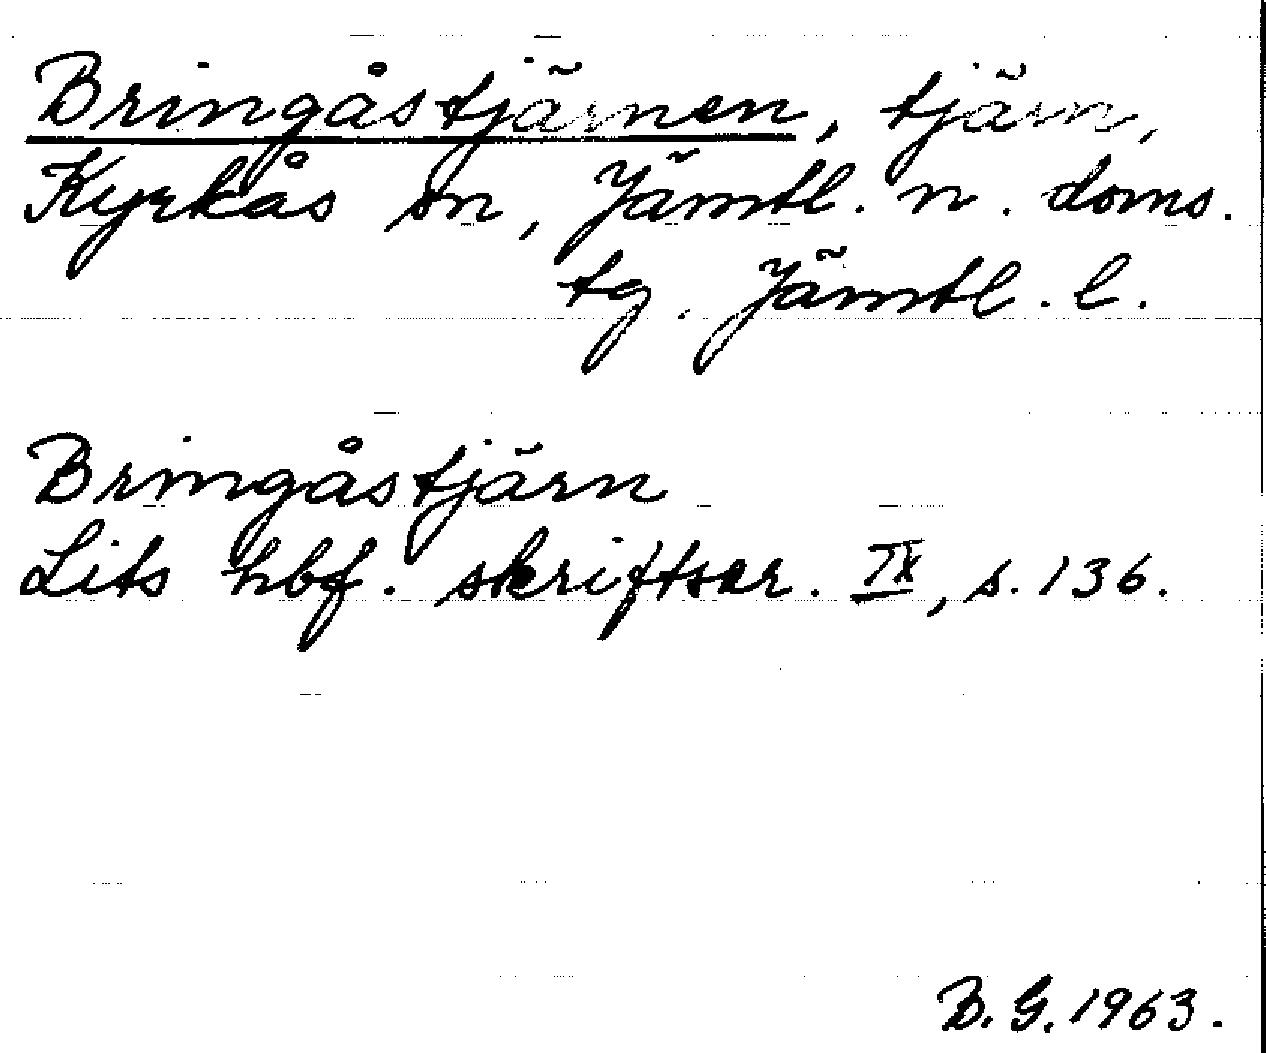 Bringåstjärnen, tjärn,
Kyrkås sn, Jämtl. n. doms.
tg. Jämtl. l.
Bringåstjärn
Lits hbf. skriftser. IX, s. 136.
B. G. 1963.